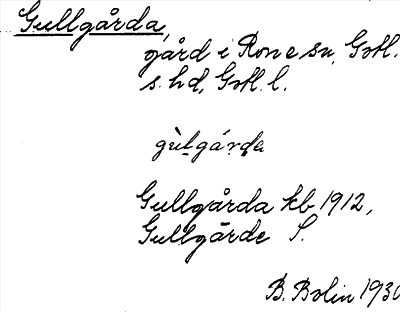 Gullgårda,
gård i Rone sn, Gotl.
s. hd, Gotl. l.
gùlgárda
Gullgårda kb 1912,
Gullgårde S.
B. Bolin 1930